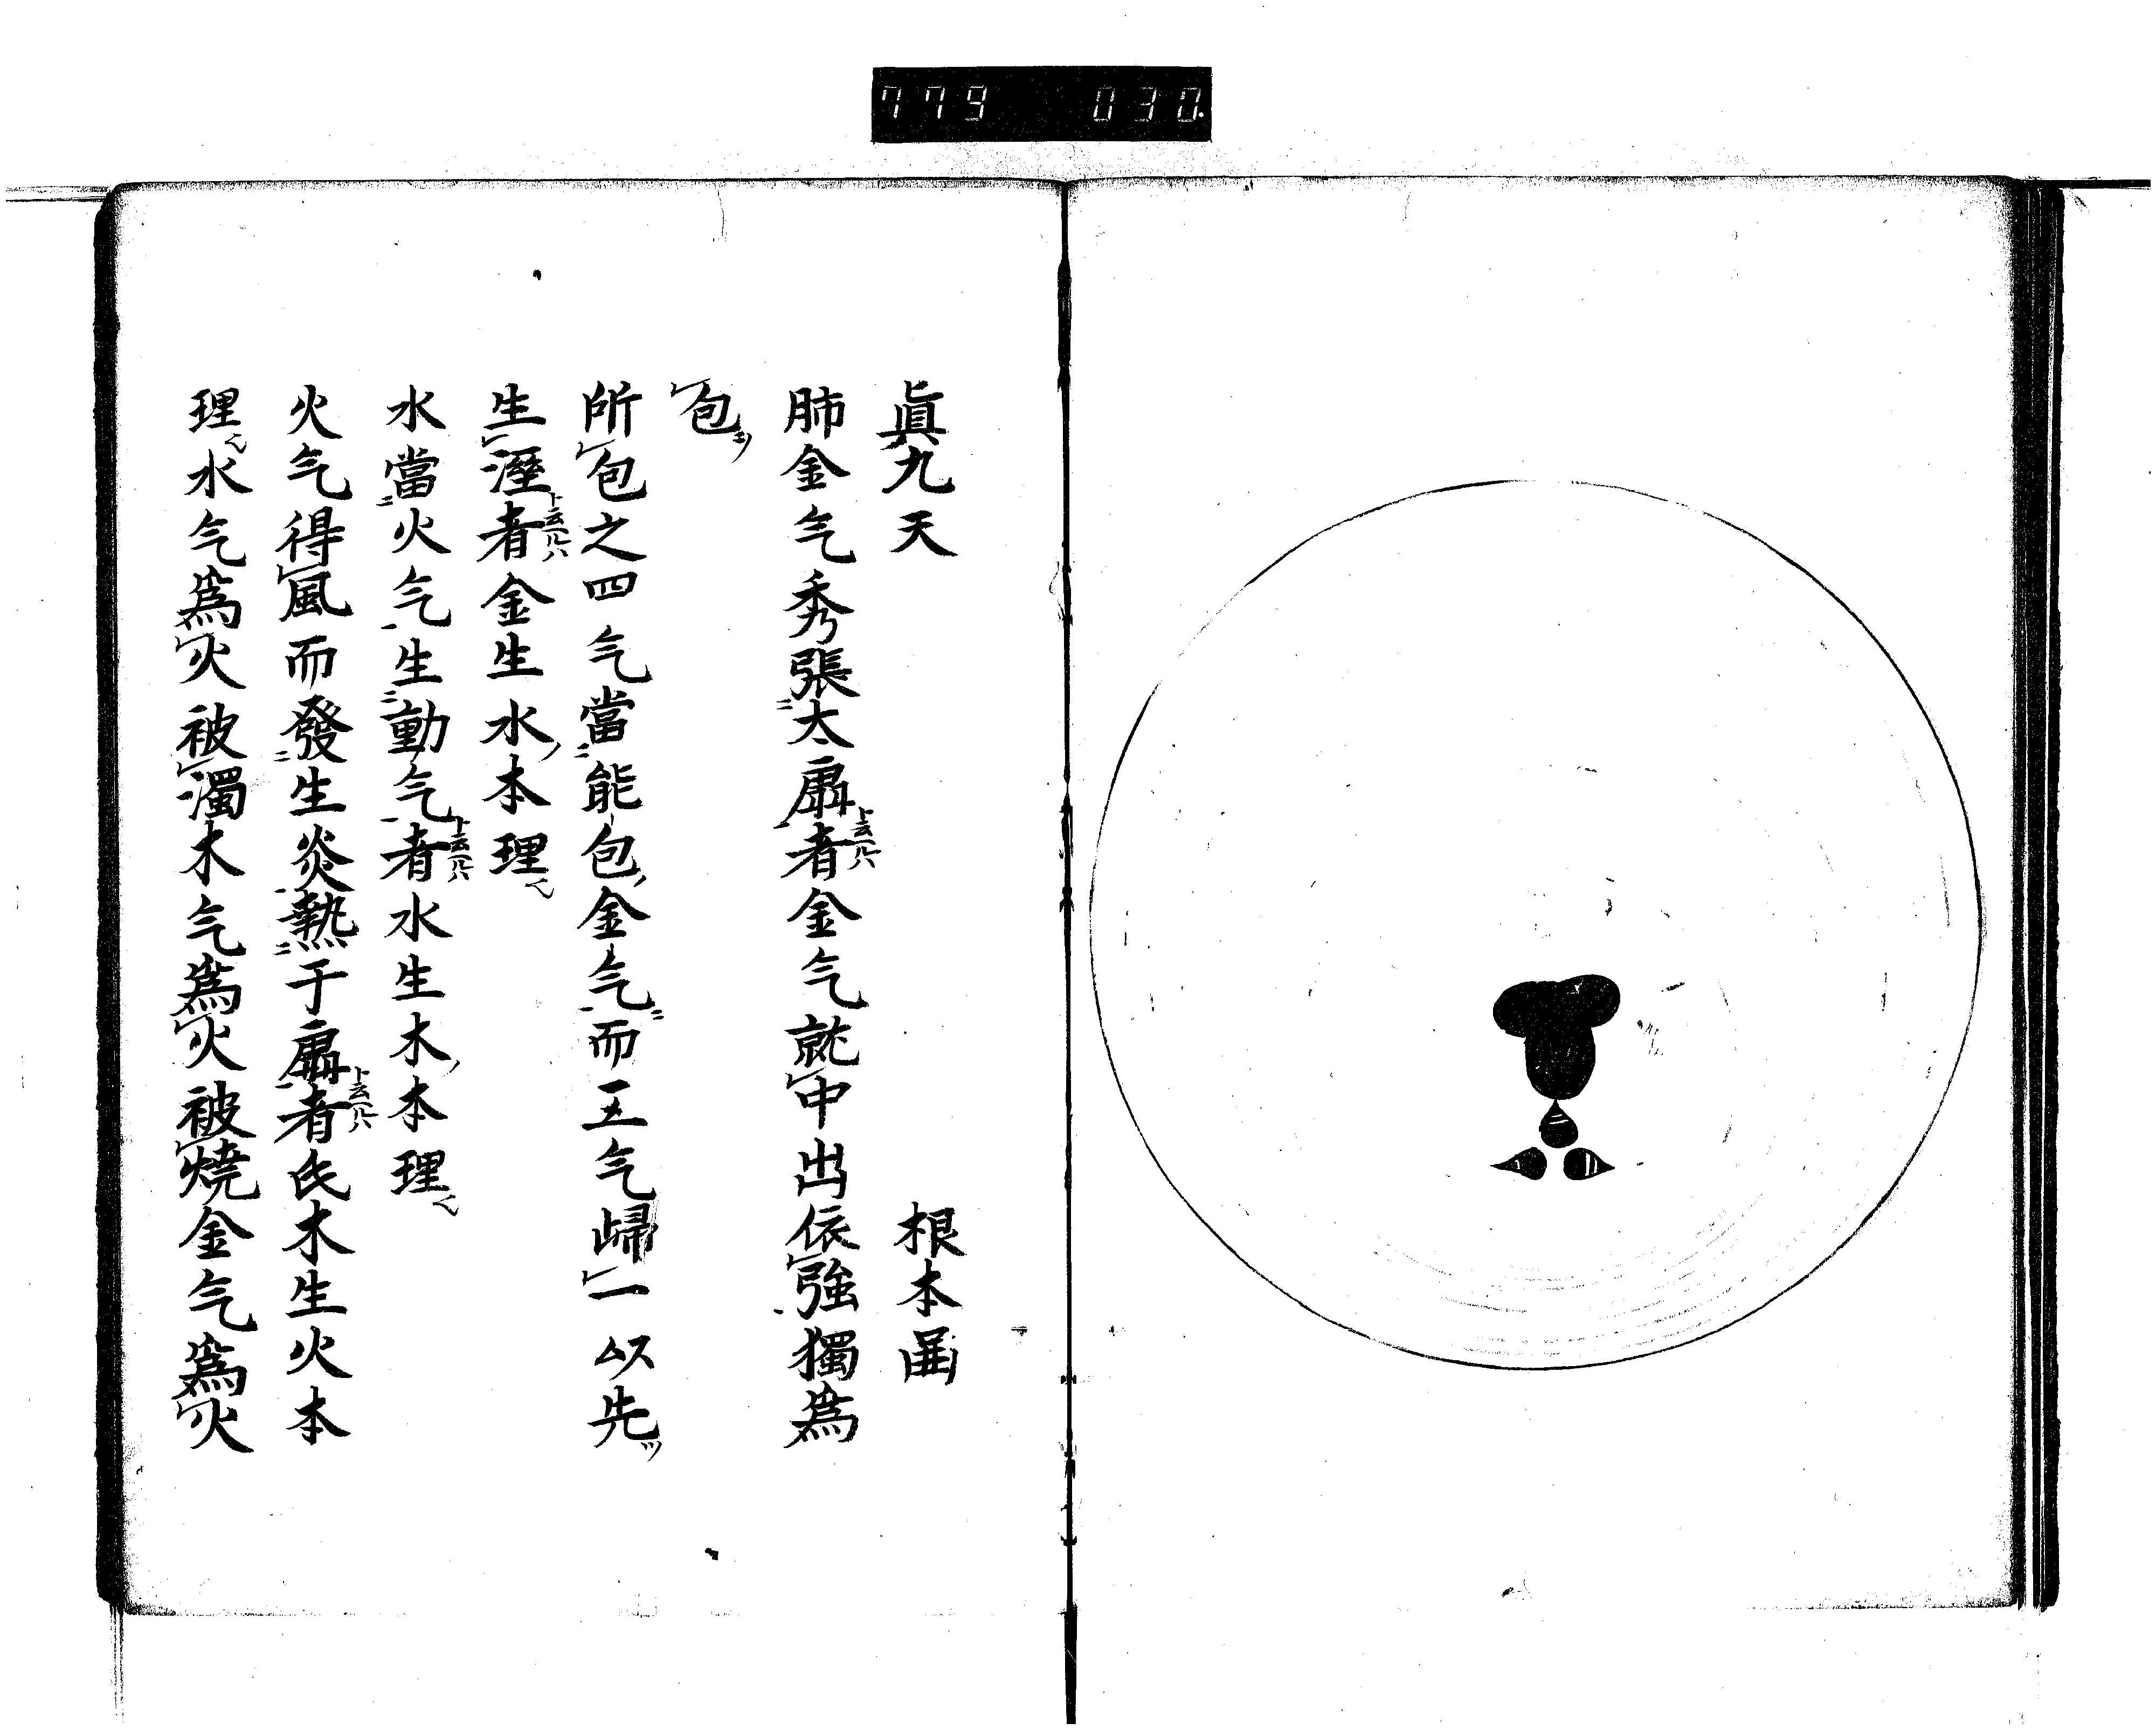 779 030.
眞九天 根本畕
肺金气秀張太扄者金气就中出依強獨為
包
所包之四气當能包金气而五气歸一以先
生溼者金生水本理
水當火气生動气者水生木本理
火气得風而發生炎熱于扄者氏木生火本
理水气為火被濁木气為火被燒金气為火